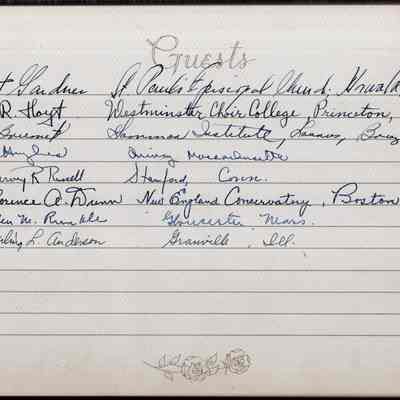 Guests
t Gardner St Paul's Episcopal Church.
R. Hoyt Westminster Choir College, Princeton,
Gammon Institute,
Hughes Irving Massachusetts
R Russell Stamford, Conn.
orence A. Dunn New England Conservatory, Boston
M. Gloucester Mass.
L. Anderson Granville, Ill.